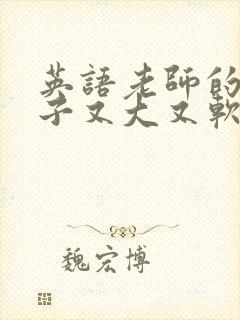 英語老師的
子又大又軟
魏宏博